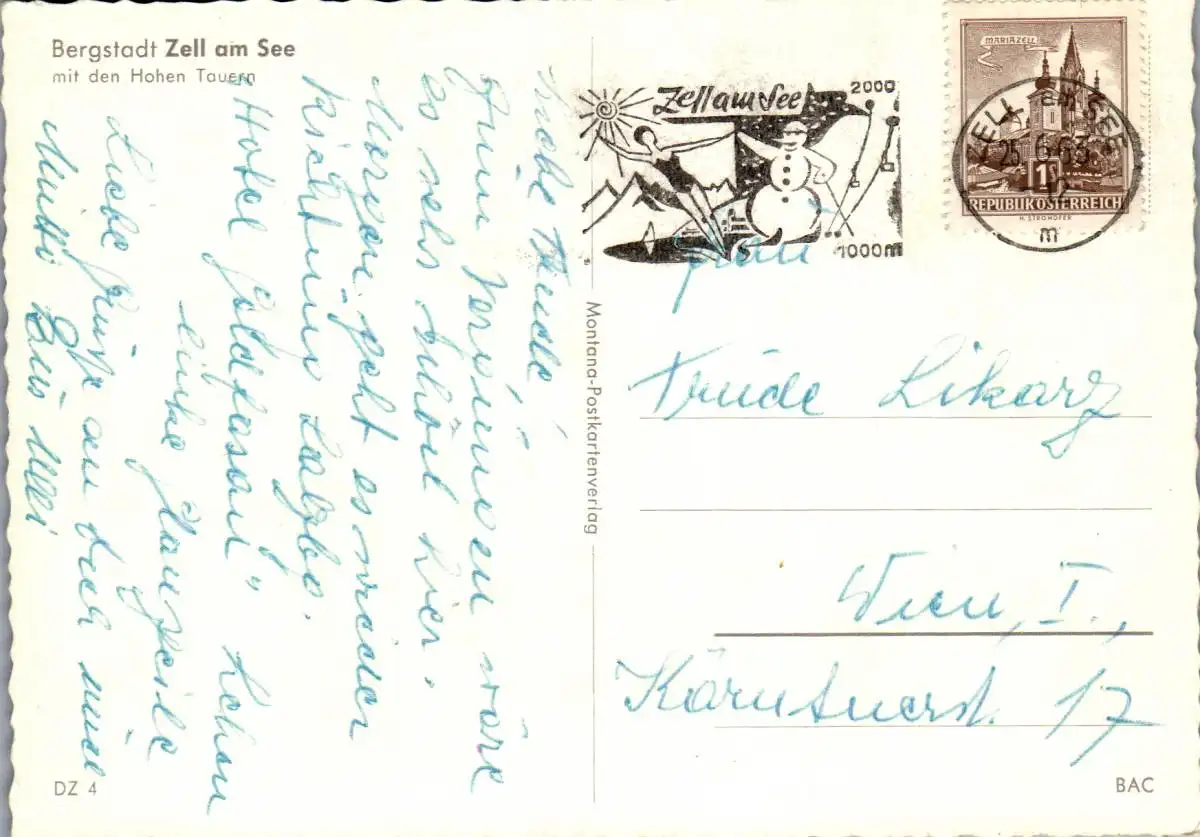 Bergstadt Zell am See
mit den Hohen Tauern
Liebe Trude!
Zum wäre
es sehr schön hier.
Morgen geht es wieder
Richtung Salzbg.
"Hotel Goldfasan"
linke
Liebe Grüße an dich und
Mutti
Zell am See
2000
1000m
MARIAZELL
1S
REPUBLIK ÖSTERREICH
H. STROHOFER
ZELL AM SEE
25.6.63
m
Frau
Trude Likarz
Wien, I.,
Kärntnerst. 17
Montana-Postkartenverlag
DZ 4
BAC